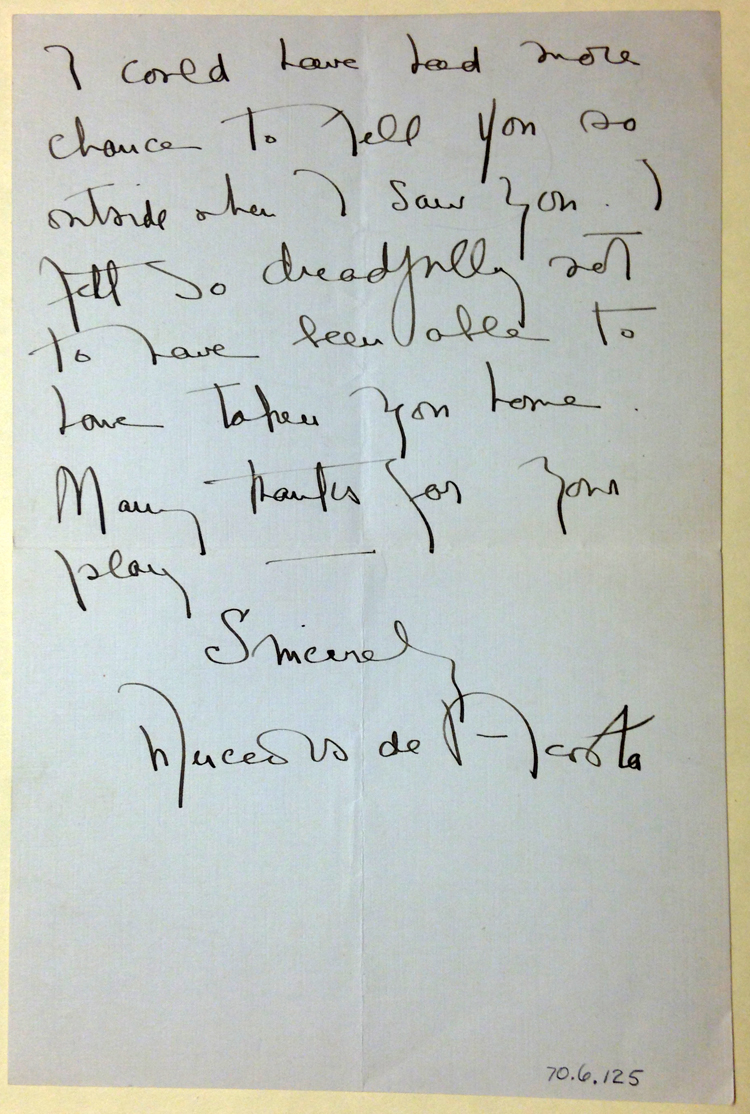 I could have had more
chance to tell you so
outside when I saw you. I
felt so dreadfully not
to have been able to
have taken you home.
Many thanks for your
play —
Sincerely
Mercedes de Acosta
70.6.125